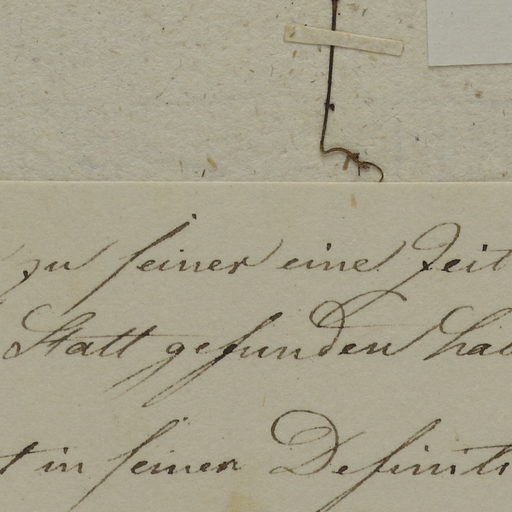 zu seiner eine Zeit
Statt gefunden hab
t in seiner Definiti